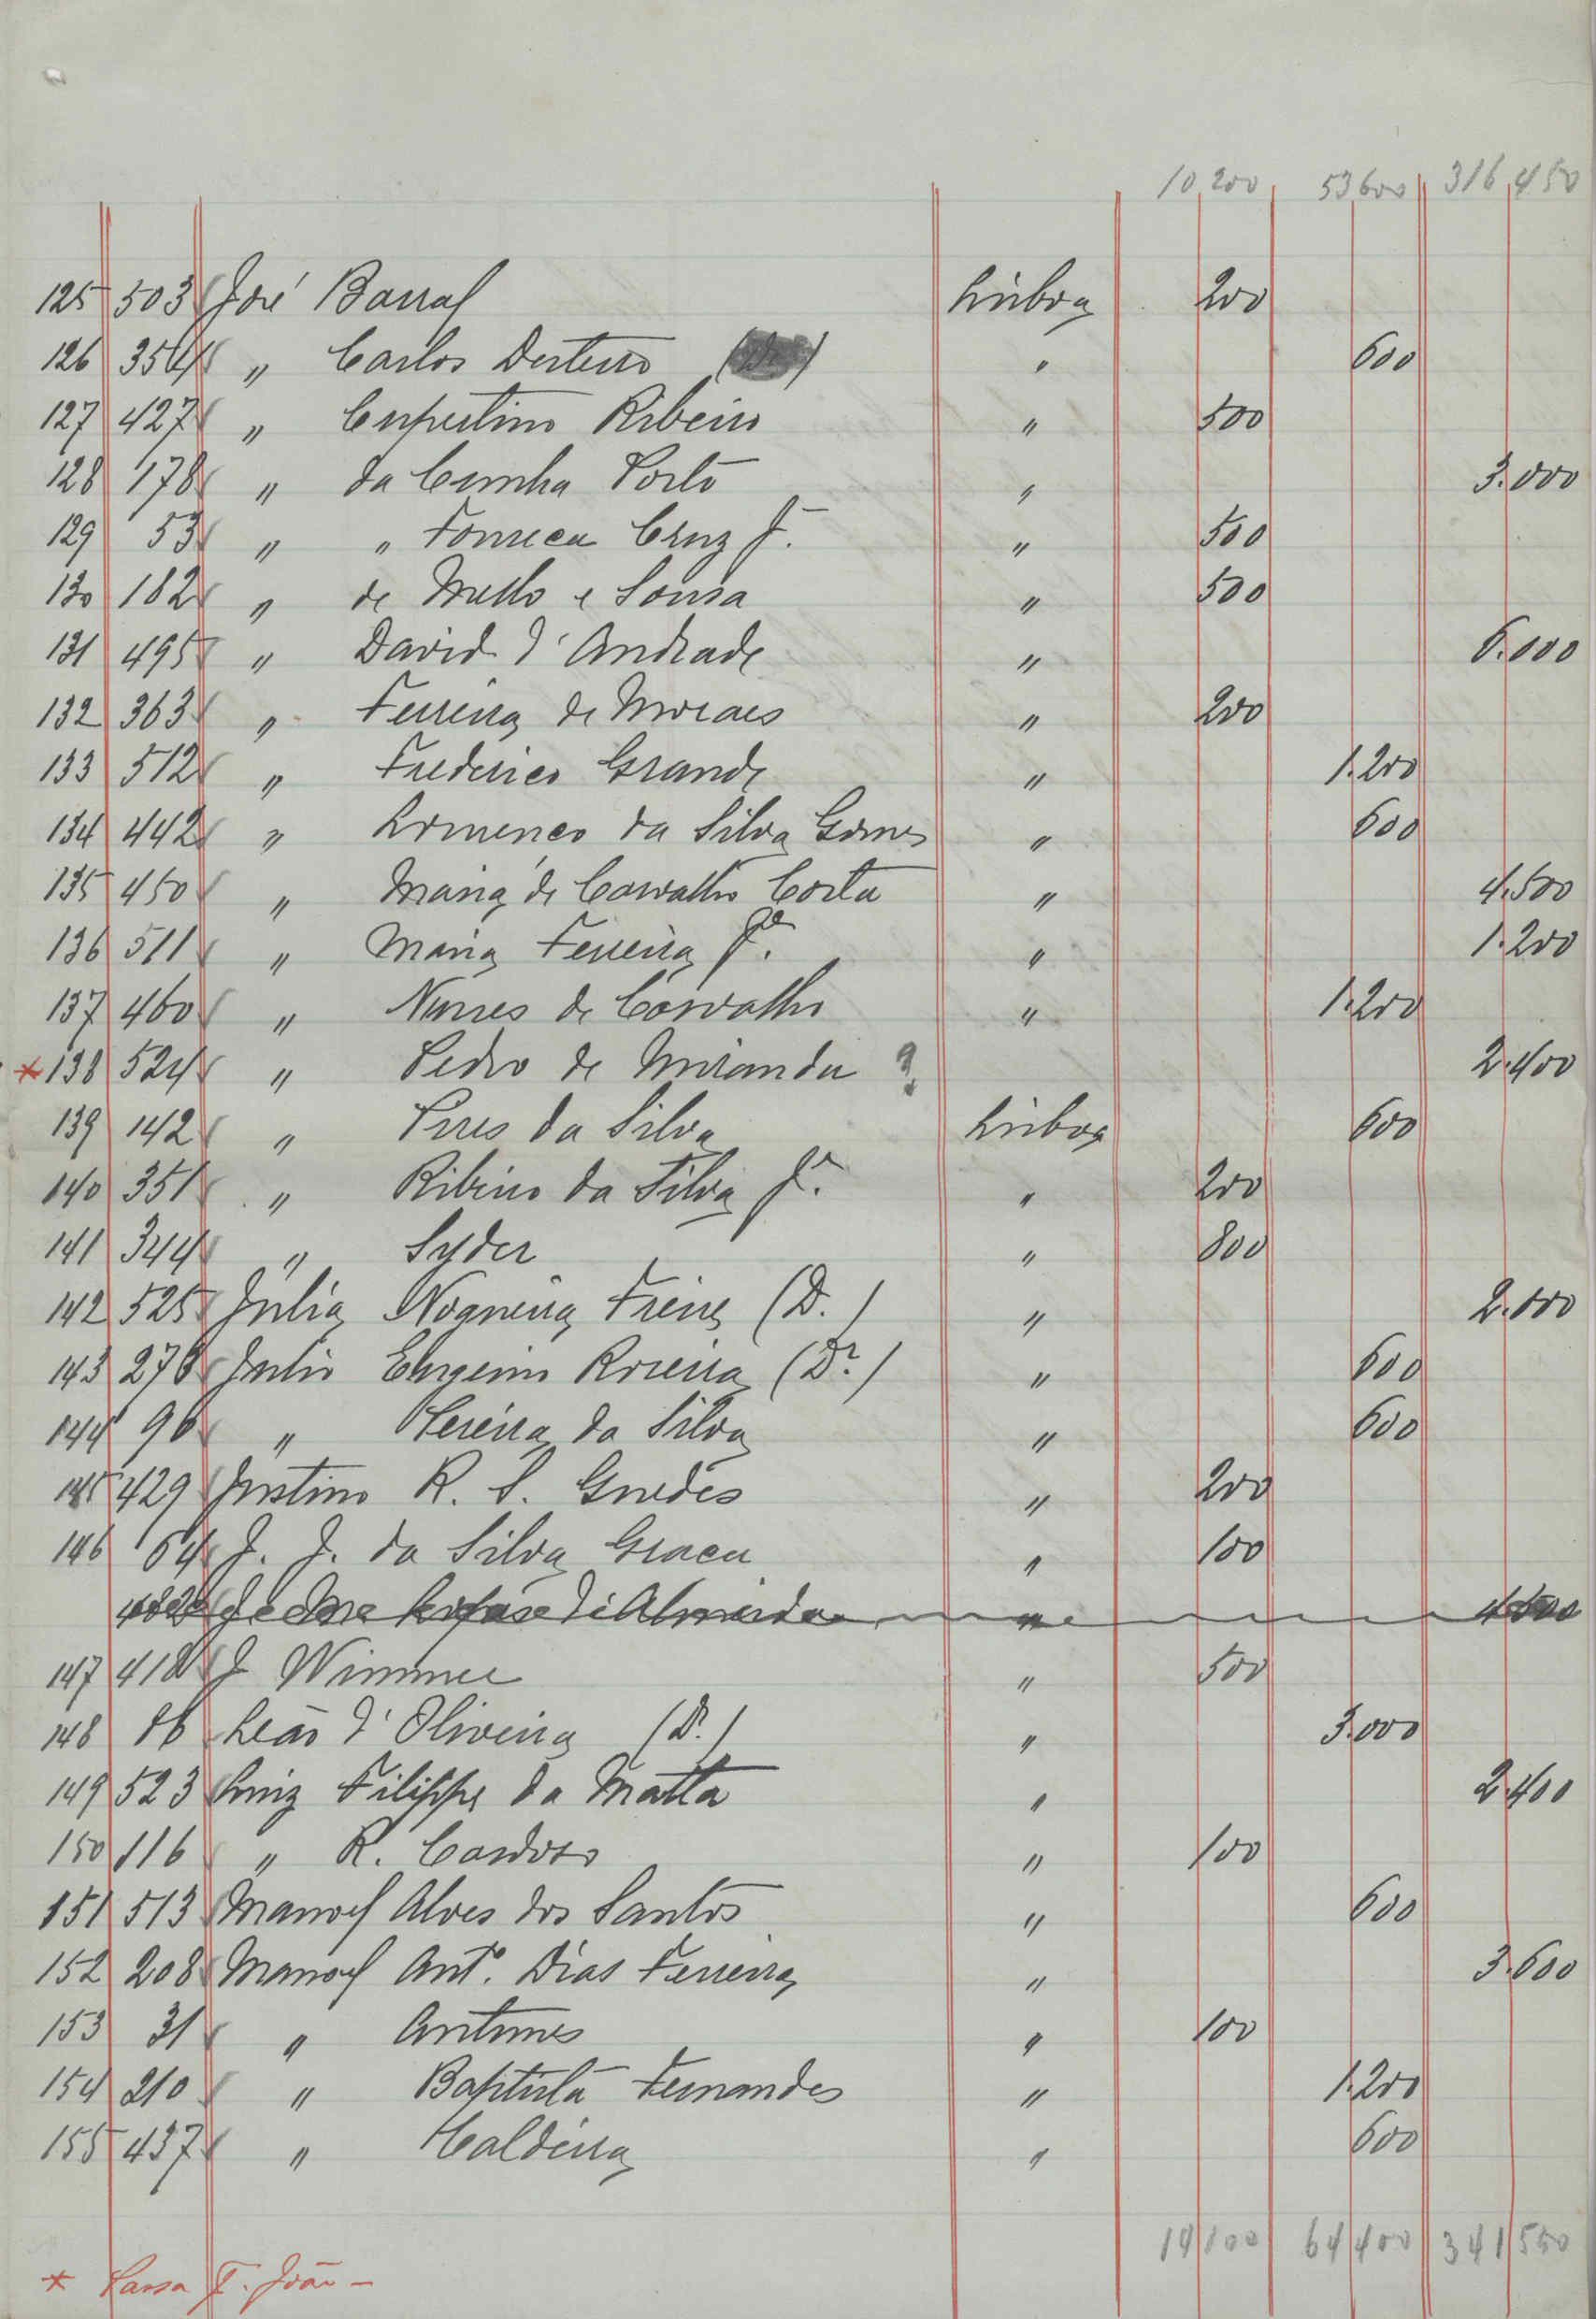 10 200 53 600 316 450
125 503 José Barral Lisboa 200
126 354 " Carlos Desterro " 600
127 427 " Cupertino Ribeiro " 500
128 178 " da Cunha Porto " 3.000
129 53 " " Fonseca Cruz Jr. " 500
130 182 " de Mello e Sousa " 500
131 495 " David d'Andrade " 6.000
132 363 " Ferreira de Moraes " 200
133 512 " Frederico Grande " 1.200
134 442 " Lourenco da Silva Gomes " 600
135 450 " Maria de Carvalho Costa " 4.500
136 511 " Maria Ferreira Jr. " 1.200
137 460 " Nunes de Carvalho " 1.200
* 138 524 " Pedro de Miranda ? 2.400
139 142 " Pires da Silva Lisboa 600
140 351 " Ribeiro da Silva Jr. " 200
141 344 " Syder " 800
142 525 Julia Nogueira Freire (D.) " 2.000
143 276 Julio Eugenio Roseira (Dr.) " 600
144 96 " Pereira da Silva " 600
145 429 Justino R. S. Guedes " 200
146 64 J. J. da Silva Graca " 100
482 d'Almeida "
147 418 J Wimmer " 500
148 86 Leão d'Oliveira (Dr.) " 3.000
149 523 Luiz Filippe da Matta " 2.400
150 116 " R. Cardoso " 100
151 513 Manoel Alves dos Santos " 600
152 208 Manoel Ant.º Dias Ferreira " 3.600
153 31 " Antunes " 100
154 210 " Baptista Fernandes " 1.200
155 437 " Caldeira " 600
14 100 64 400 341 550
* Passa F. João -